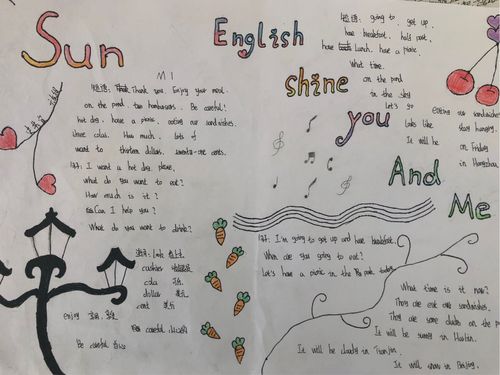 Sun
English
shine
you
And
Me
M1
Thank you. Enjoy your meal.
on the pond. two hamburgers. Be careful!
hot dog. have a picnic. eating our sandwiches.
How much. lots of
want to thirteen dollars. seventy-one cents.
I want a hot dog, please.
What do you want to eat?
How much is it?
Can I help you?
What do you want to drink?
cashier
cola
enjoy
Be careful
going to. get up.
have breakfast. half past.
have lunch. have a picnic.
What time.
on the pond
in the sky
Let's go
eating our sandwiches
Looks like stay hungry.
It will be on Friday
in Hangzhou
I'm going to get up and have breakfast.
When are you going to eat?
Let's have a picnic in the park today.
What time is it now?
They are our sandwiches.
They are some ducks on the
It will be sunny in
It will be cloudy in Tianjin.
It will snow in Beijing.